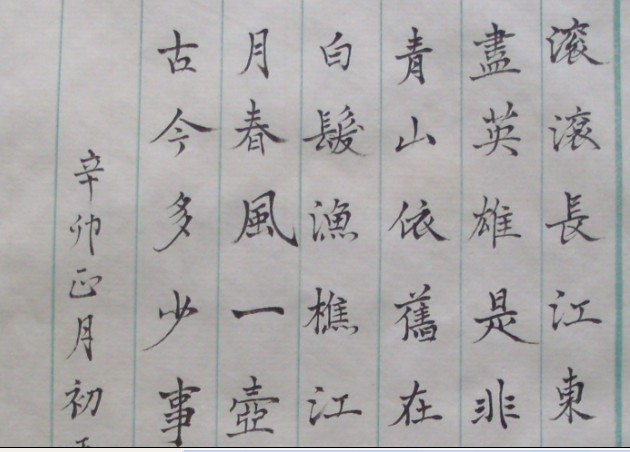 滚滚長江東
盡英雄是非
青山依舊在
白髮漁樵江
月春風一壺
古今多少事
辛卯正月初